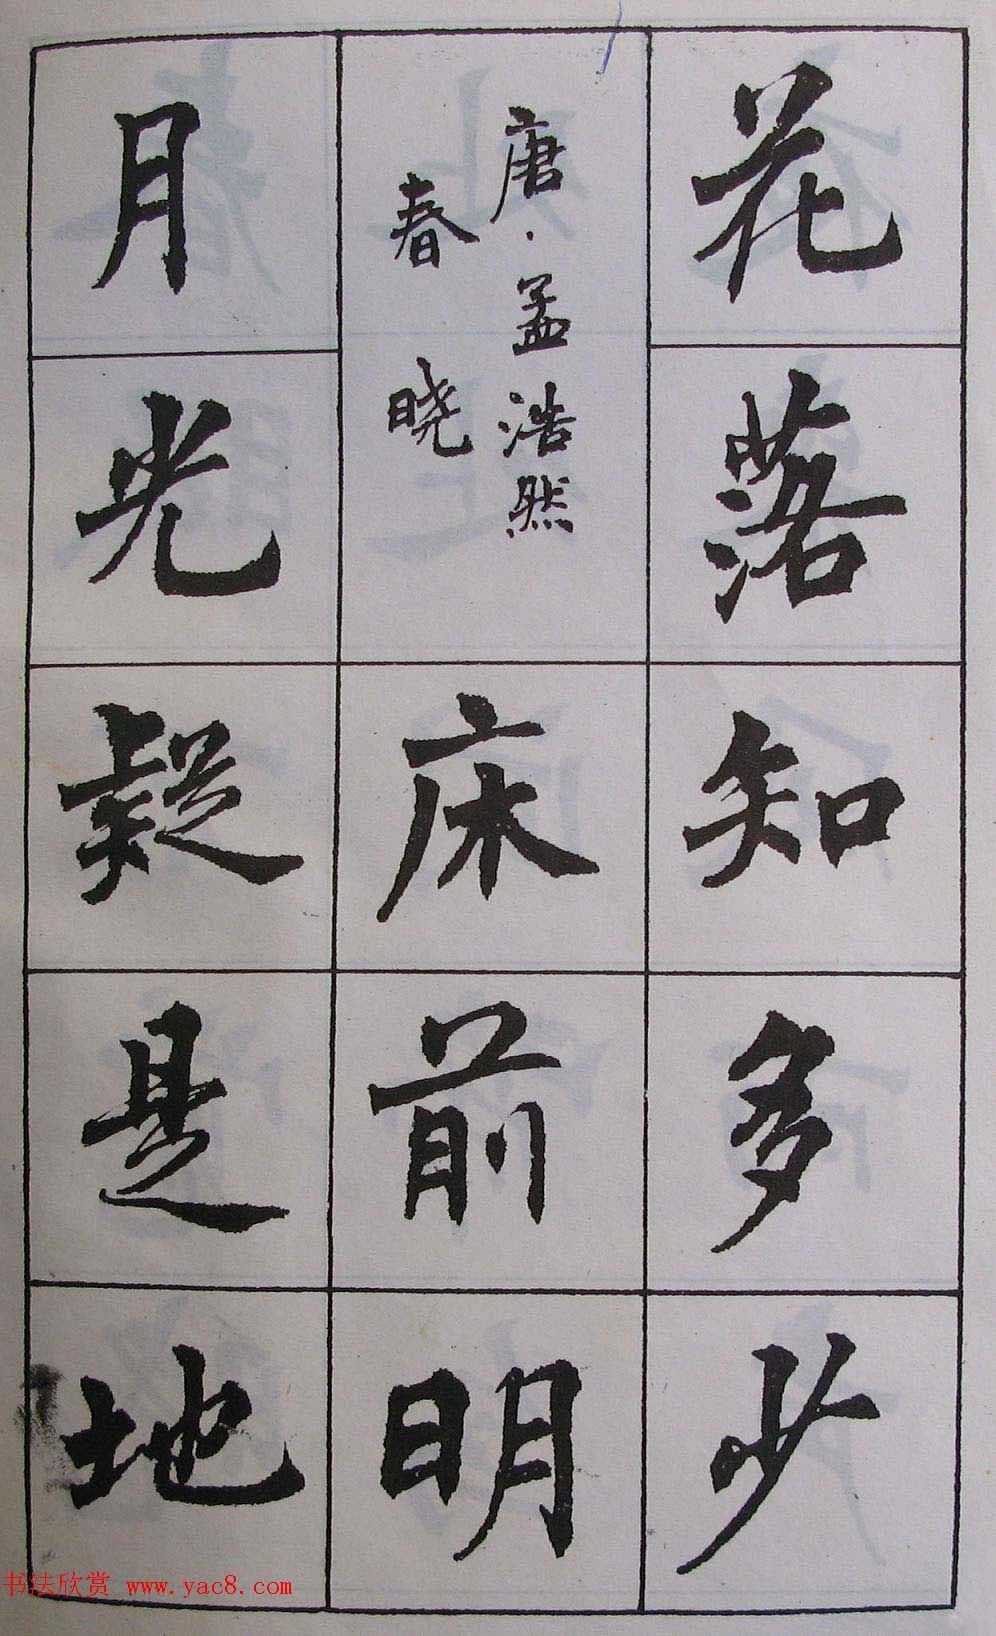 花落知多少
唐·孟浩然
春晓
床前明
月光疑是地
书法欣赏 www.yac8.com